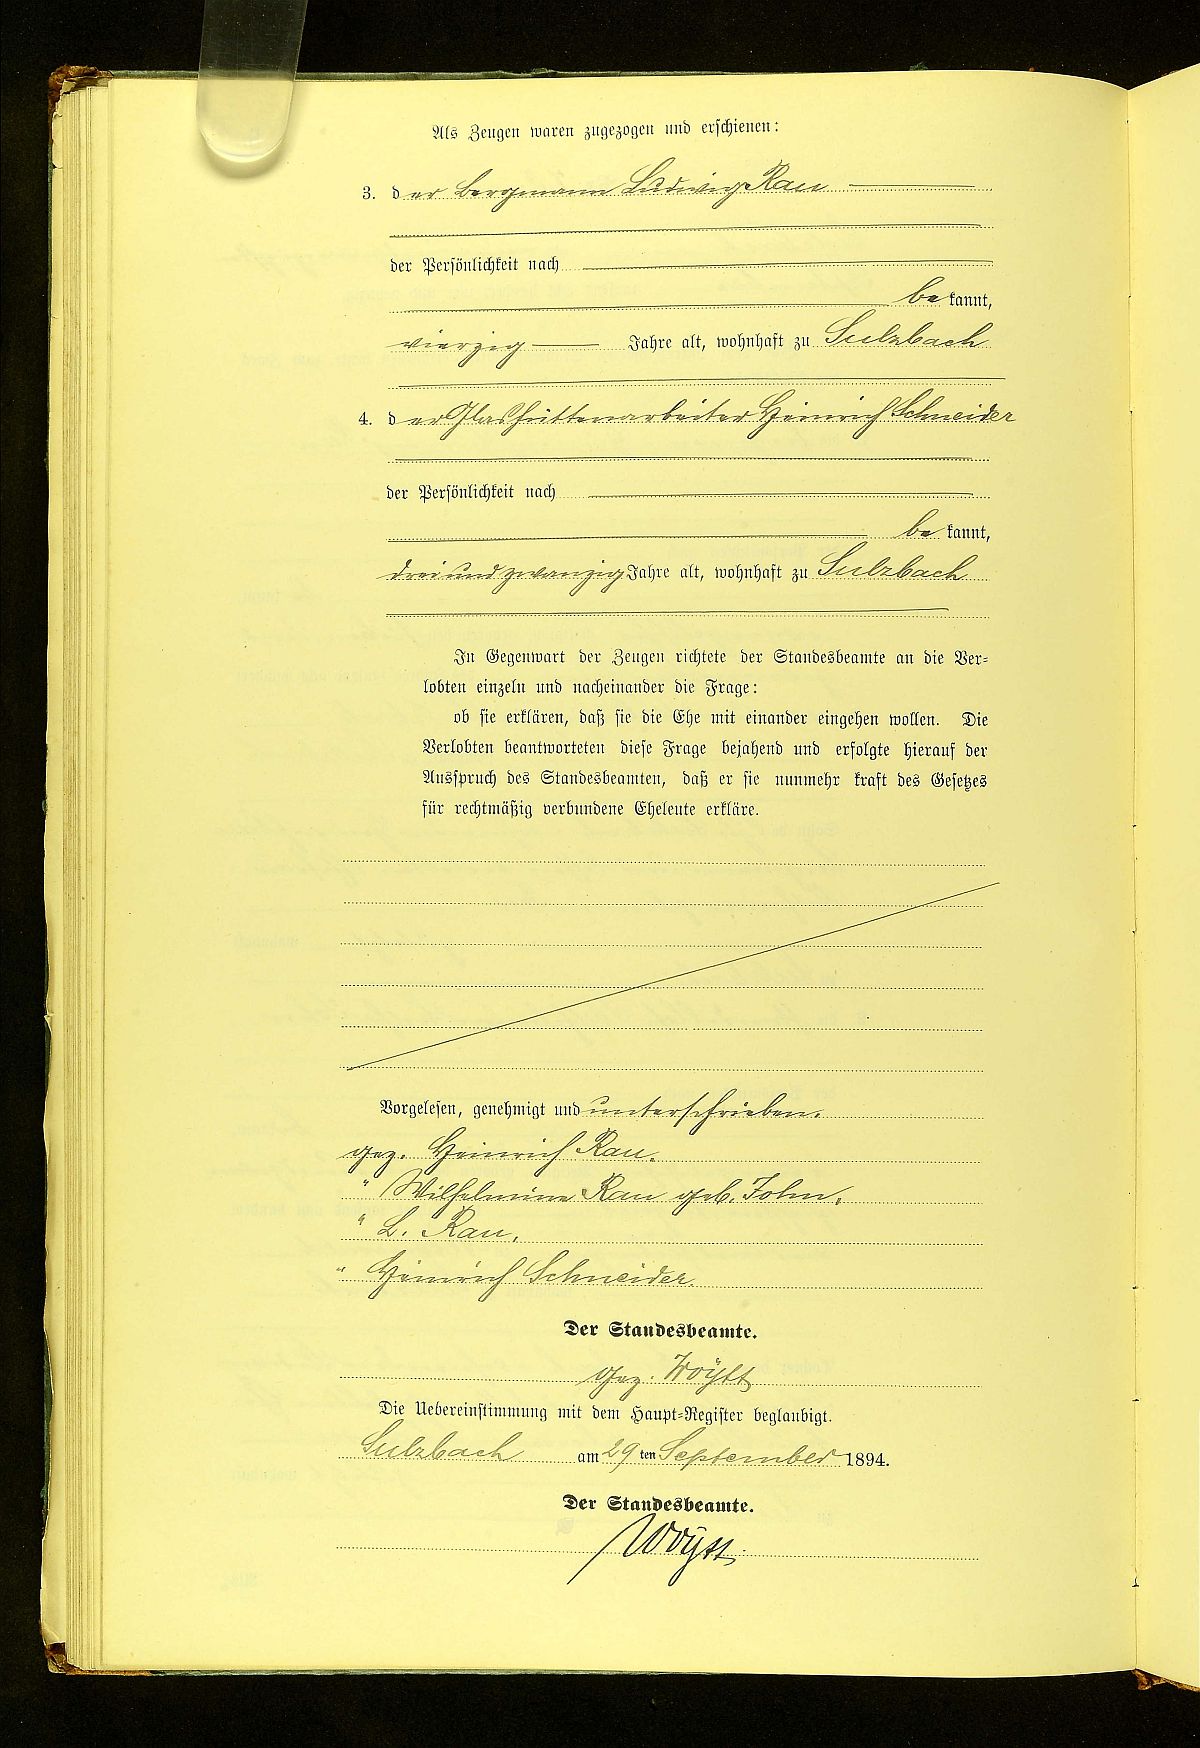 Als Zeugen waren zugezogen und erschienen:
3. der Bergmann Ludwig Rau
der Persönlichkeit nach
bekannt,
vierzig Jahre alt, wohnhaft zu Sulzbach
4. der Glashüttenarbeiter Heinrich Schneider
der Persönlichkeit nach
bekannt,
dreiundzwanzig Jahre alt, wohnhaft zu Sulzbach
In Gegenwart der Zeugen richtete der Standesbeamte an die Ver-
lobten einzeln und nacheinander die Frage:
ob sie erklären, daß sie die Ehe mit einander eingehen wollen. Die
Verlobten beantworteten diese Frage bejahend und erfolgte hierauf der
Ausspruch des Standesbeamten, daß er sie nunmehr kraft des Gesetzes
für rechtmäßig verbundene Eheleute erkläre.
Vorgelesen, genehmigt und unterschrieben.
gez. Heinrich Rau.
" Wilhelmine Rau geb. John.
" L. Rau.
" Heinrich Schneider.
Der Standesbeamte.
gez. Woytt
Die Uebereinstimmung mit dem Haupt-Register beglaubigt.
Sulzbach am 29ten September 1894.
Der Standesbeamte.
Woytt